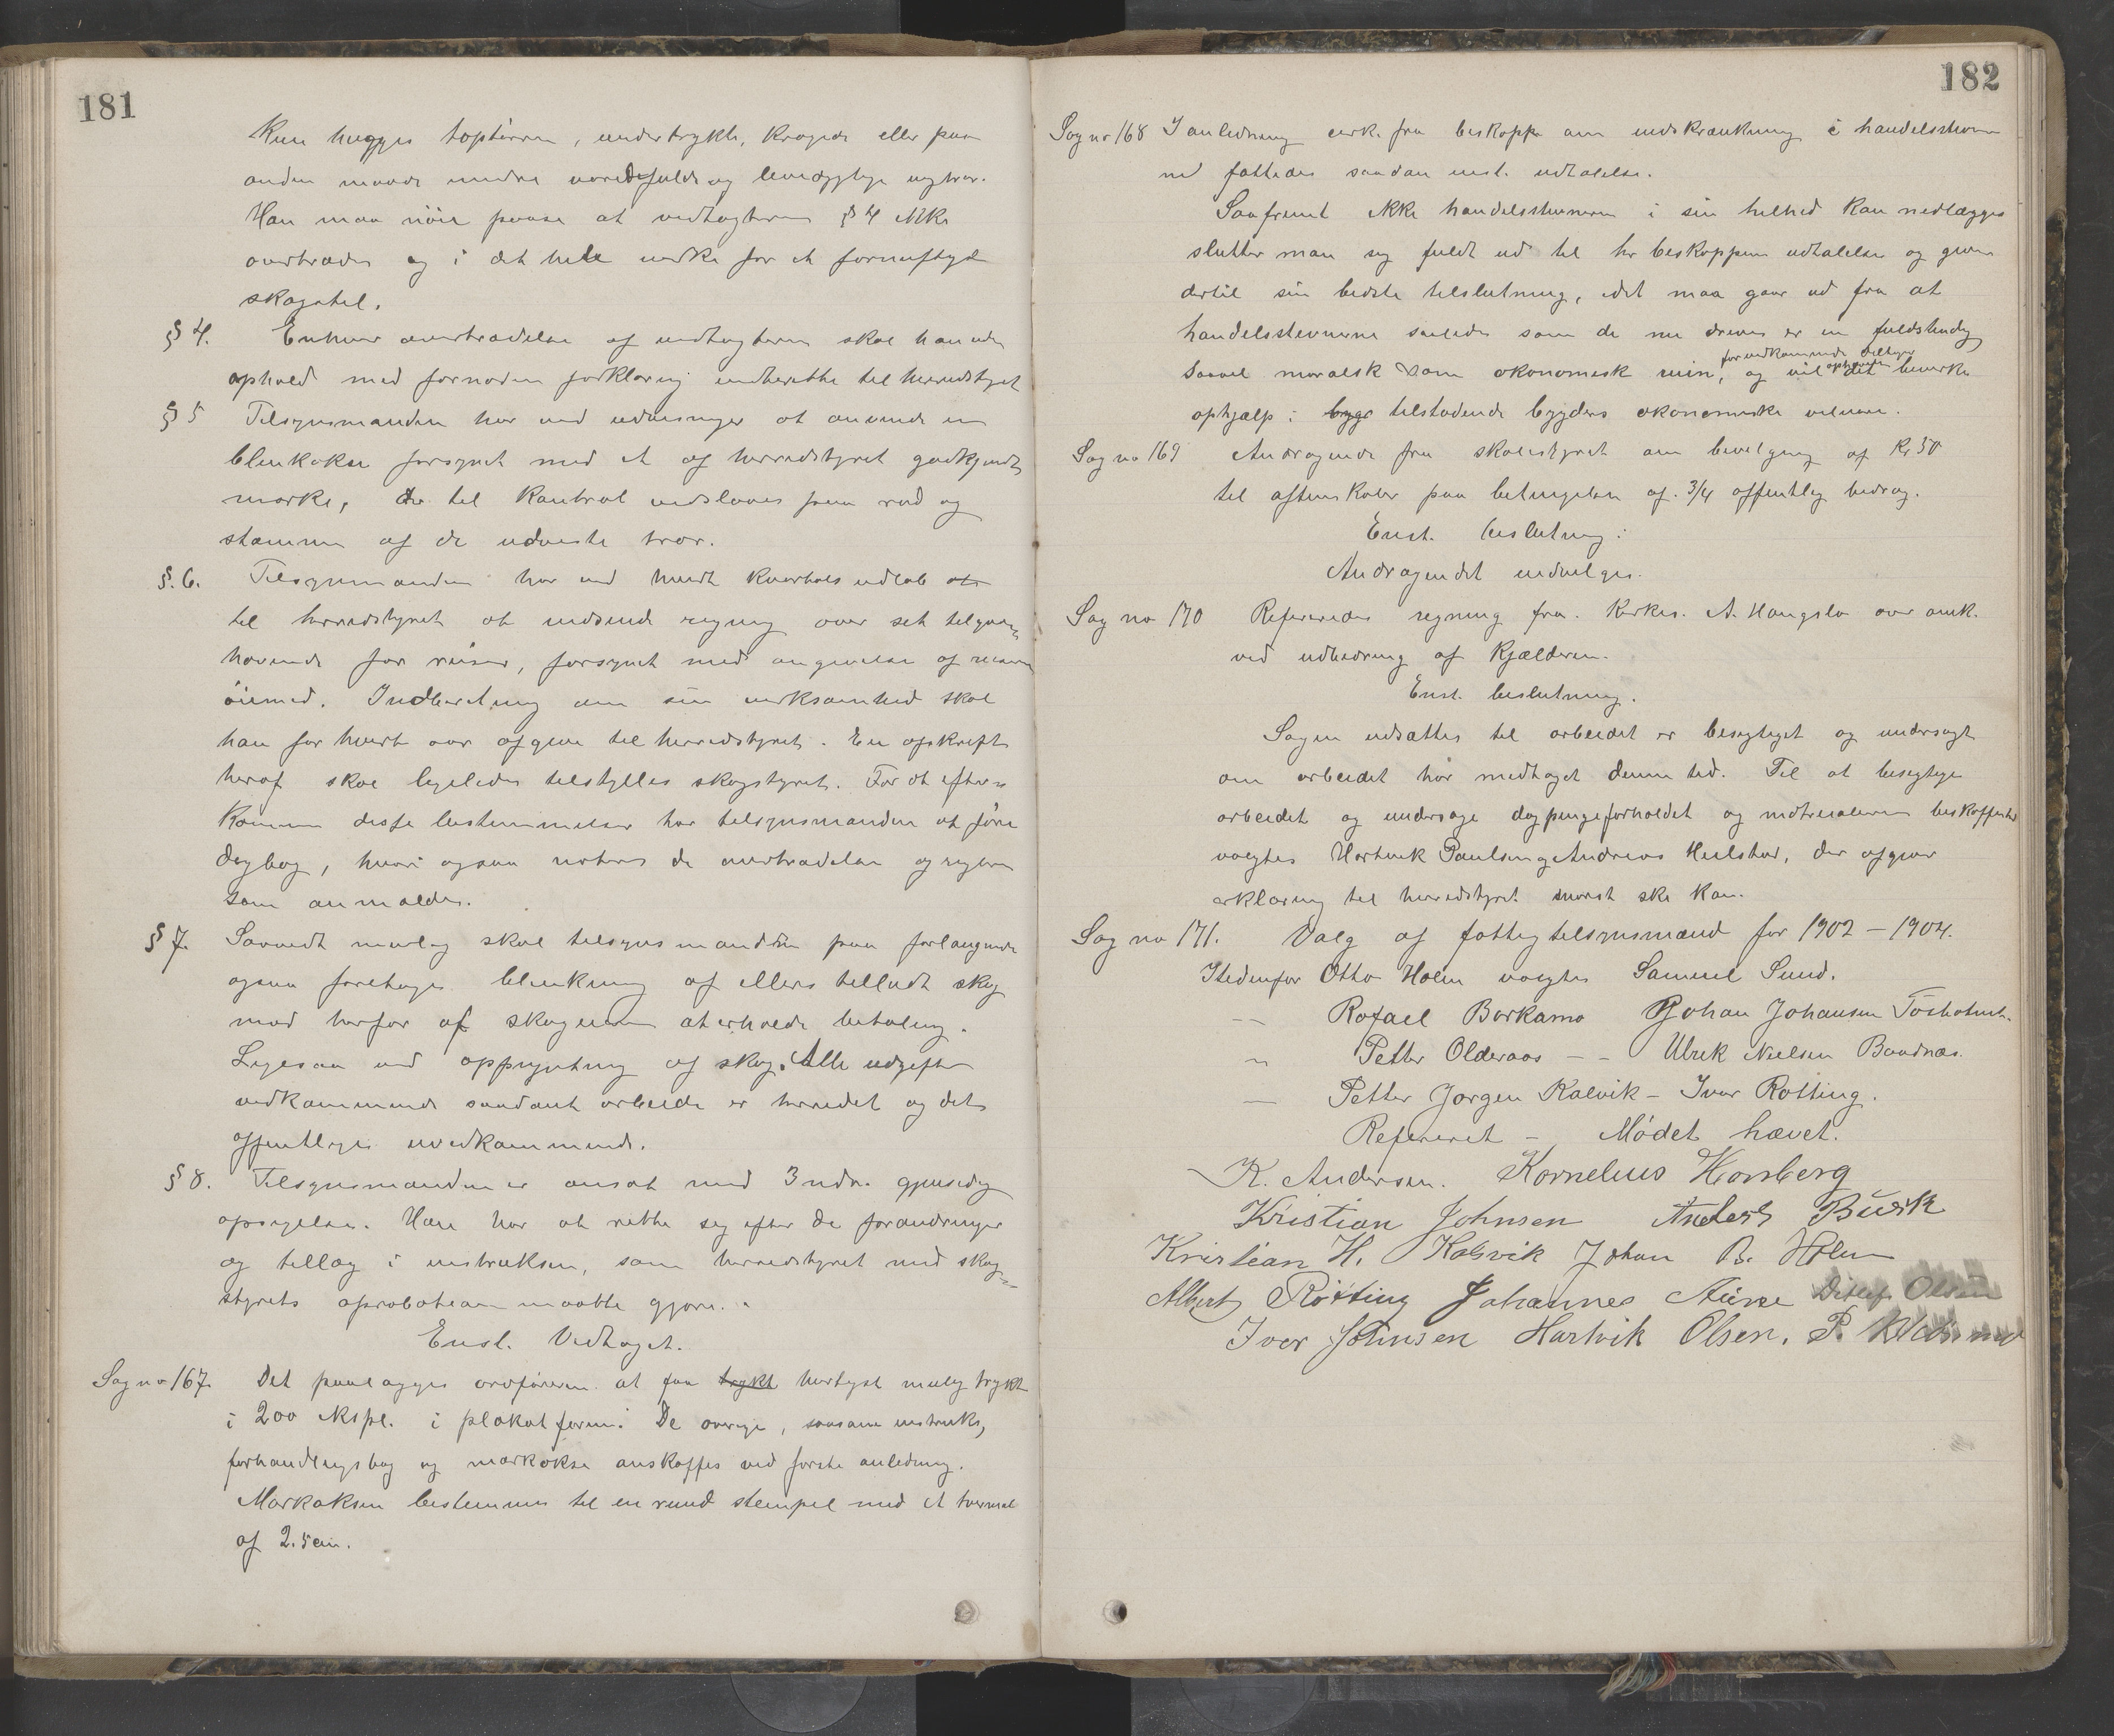 181
Kun hugges toptørre, undertrykte, krogede eller paa
anden maade mindre værdifulde og levedygtige ungtrær.
Han maa nöie paase at vedtægterne § 4 ikke
overtrædes og i det hele virke for et fornuftigt
skogstel.
§ 4. Enhver overtrædelse af vedtægterne skal han uden
ophold med fornøden forklaring indberette til herredstyret
§ 5 Tilsynsmanden har ved udvisninger at anvende en
blinkøkse forsynet med et af herredstyret godkjendt
mærke, der til kontrol indslaaes paa rod og
stamme af de udviste trær.
§. 6. Tilsynsmanden har ved hvert kvartals udløb
til herredstyret at indsende regning over sit tilgode-
havende for reiser, forsynet med angivelse af reisens
öiemed. Indberetning om sin virksomhed skal
han for hvert aar afgive til herredstyret. En afskrift
heraf skal ligeledes tilstilles skogstyret. For at efter-
komme disse bestemmelser har tilsynsmanden at före
dagbog, hvori ogsaa noteres de overtrædelser
som anmeldes.
§ 7. Saavidt mulig skal tilsynsmanden paa forlangende
ogsaa foretage blinkning af ellers tilladt skog
mod herfor af skogeieren at erholde betaling.
Ligesaa ved oppynting af skog. Alle udgifter
vedkommende saadant arbeide er herredet og det
offentlige uvedkommende.
§ 8. Tilsynsmanden er ansat med 3 mdr. gjensidig
opsigelse. Han har at rette sig efter de forandringer
og tillæg i instruksen, som herredstyret med skog-
styrets aprobation maatte gjøre.
Enst. Vedtaget.
Sag no 167. Det paalægges ordföreren at faa trykt hurtigst mulig trykt
i 200 ekspl. i plakatform. De øvrige, saasom instruks,
forhandlingsbog og mærkøkse anskaffes ved første anledning.
Mærkøksen bestemmes til en rund stempel med et tvermal
af 2.5 cm.
182
Sag no 168 I anledning cirk. fra biskoppe om indskrænkning i handelsstevne
ne fattedes saadan enst. udtalelse.
Saafremt ikke handelsstevnerne i sin helhed kan nedlægges
slutter man sig fuldt ud til hr biskoppens udtalelse og giver
dertil sin bedste tilslutning, idet maa gaar ud fra at
handelsstevnerne saaledes som de nu drives er en fuldstendig
for vedkommende deltager
saavel moralsk som økonomisk ruin, og vil ophævelsen det bevirke
ophjælp i bygs tilstødende bygders økonomiske velvære.
Sag no 169 Andragende fra skolestyret om bevilgning af Kr 50
til aftenskoler paa betingelse af 3/4 offentlig bidrag.
Enst. beslutning:
Andragendet indvilges.
Sag no 170 Refereredes regning fra Kirkes. A. Haugslo over omk.
ved udbedring af kjælderen.
Enst. beslutning.
Sagen udsættes til arbeidet er besigtiget og undersøgt
om arbeidet har medtaget denne tid. Til at besigtige
arbeidet og undersøge dagpengeforholdet og matrialernes beskaffenhed
valgtes Hartvik Paulsen og Andreas Heilstad, der afgiver
erklæring til herredstyret snarest ske kan.
Sag no 171. Valg af fattigtilsynsmænd for 1902 – 1904.
Istedenfor Otto Holm valgtes Samuel Sund.
— Rafael Barkamo Johan Johansen Tösholmt.
— Petter Olderaas – – Ulrik Nielsen Baadnæs.
— Petter Jørgen Kalvik – Ivar Røtting.
Refereret – Mödet hævet.
K. Andersen. Kornelius Hornberg
Kristian Johnsen Anders Busk
Kristian H. Kalsvik Johan B. Holm
Albert Røtting Johannes Aune Ditlef Olsen
Iver Johnsen Hartvik Olsen. P.